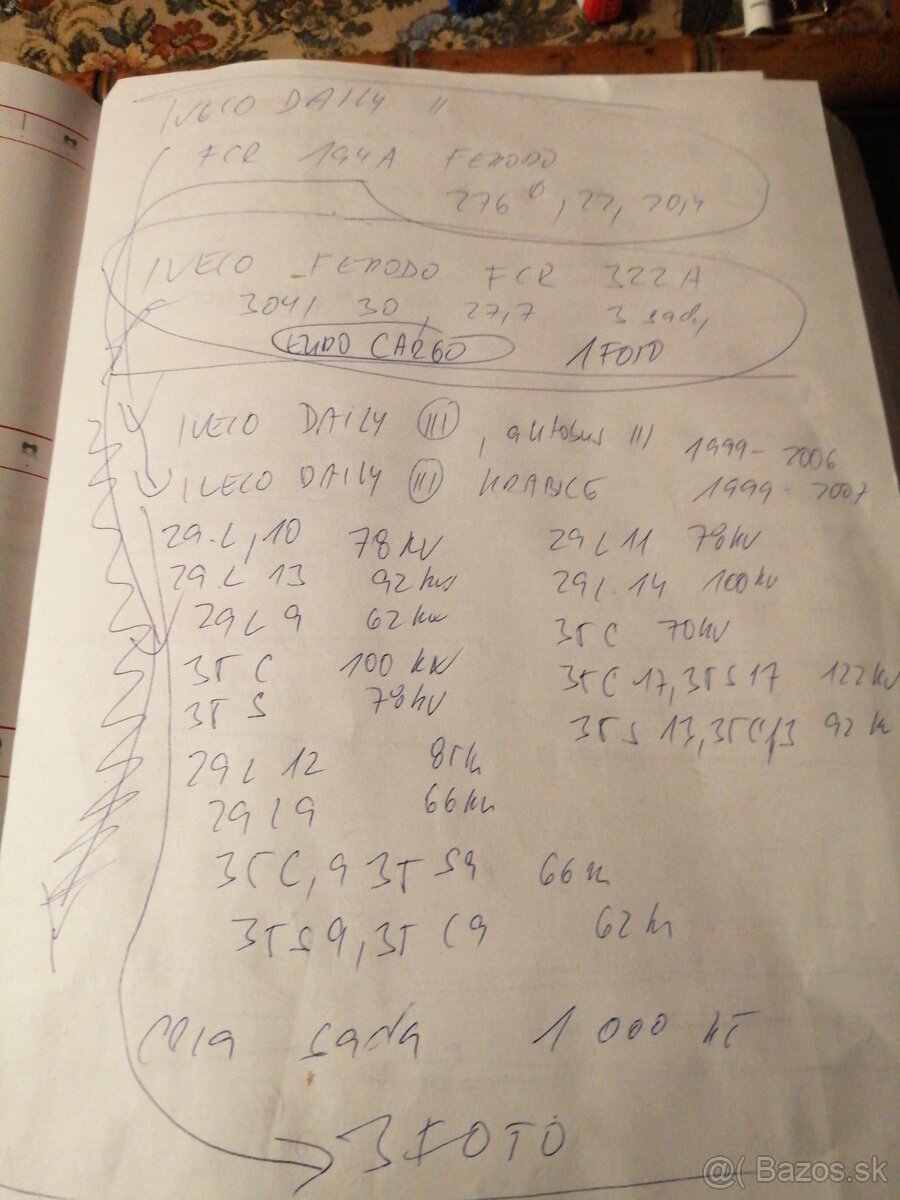 IVECO DAILY II
FCR 194A FERODO
276 Ø, 22, 20,4
IVECO FERODO FCR 322A
304, 30, 27,7 3 sady
EURO CARGO 1 FOTO
IVECO DAILY III, autobus III 1999-2006
IVECO DAILY III KRABICE 1999-2007
29.L,10 78 KW 29 L 11 78 KW
29.L 13 92 kw 29 L 14 100 KW
29 L 9 62 kw 35 C 70 KW
35 C 100 KW 35C 17, 35S 17 122 KW
35 S 78 KW 35 S 13, 35C13 92 k
29 L 12 85 k
29 L 9 66 kw
35C,9 35 S9 66 k
35 S 9, 35 C9 62 k
sada 1 000 KČ
3 FOTO
@( Bazos.sk